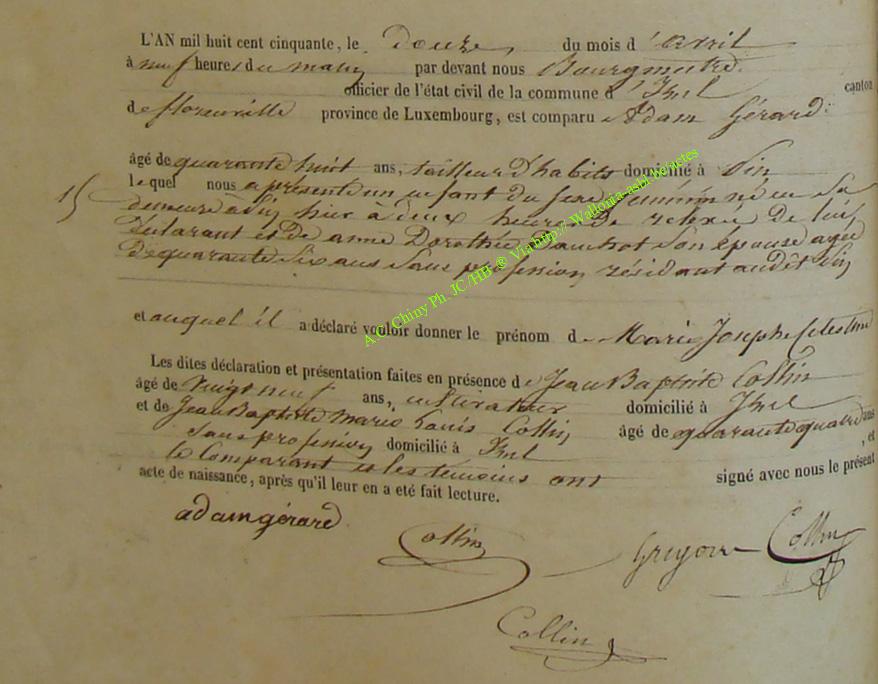 L'AN mil huit cent cinquante, le douze du mois d'avril
à neuf heures du matin par devant nous Bourgmestre
officier de l'état civil de la commune d'Izel canton
de florenville province de Luxembourg, est comparu Adam Gérard
âgé de quarante huit ans, tailleur d'habits domicilié à Pin
lequel nous a présenté un enfant du sexe féminin né en sa
15 demeure à Pin hier à deux heures de relevée de lui
déclarant et de anne Dorothée son épouse agée
de quarante six ans sans profession, résidant audit Pin
et auquel il a déclaré vouloir donner le prénom de Marie Josephe Celestine
Les dites déclaration et présentation faites en présence de Jean Baptiste Collin
âgé de vingt neuf ans, cultivateur domicilié à Izel
et de Jean Baptiste marie Louis Collin âgé de quarante quatre ans
sans profession domicilié à Izel , et
le Comparant et les témoins ont signé avec nous le présent
acte de naissance, après qu'il leur en a eté fait lecture.
adam gérard
Collin Grégoire Collin
Collin
A.C. Chiny Ph. JC/HB ® Via http://-Wallonia-asbl.be/actes